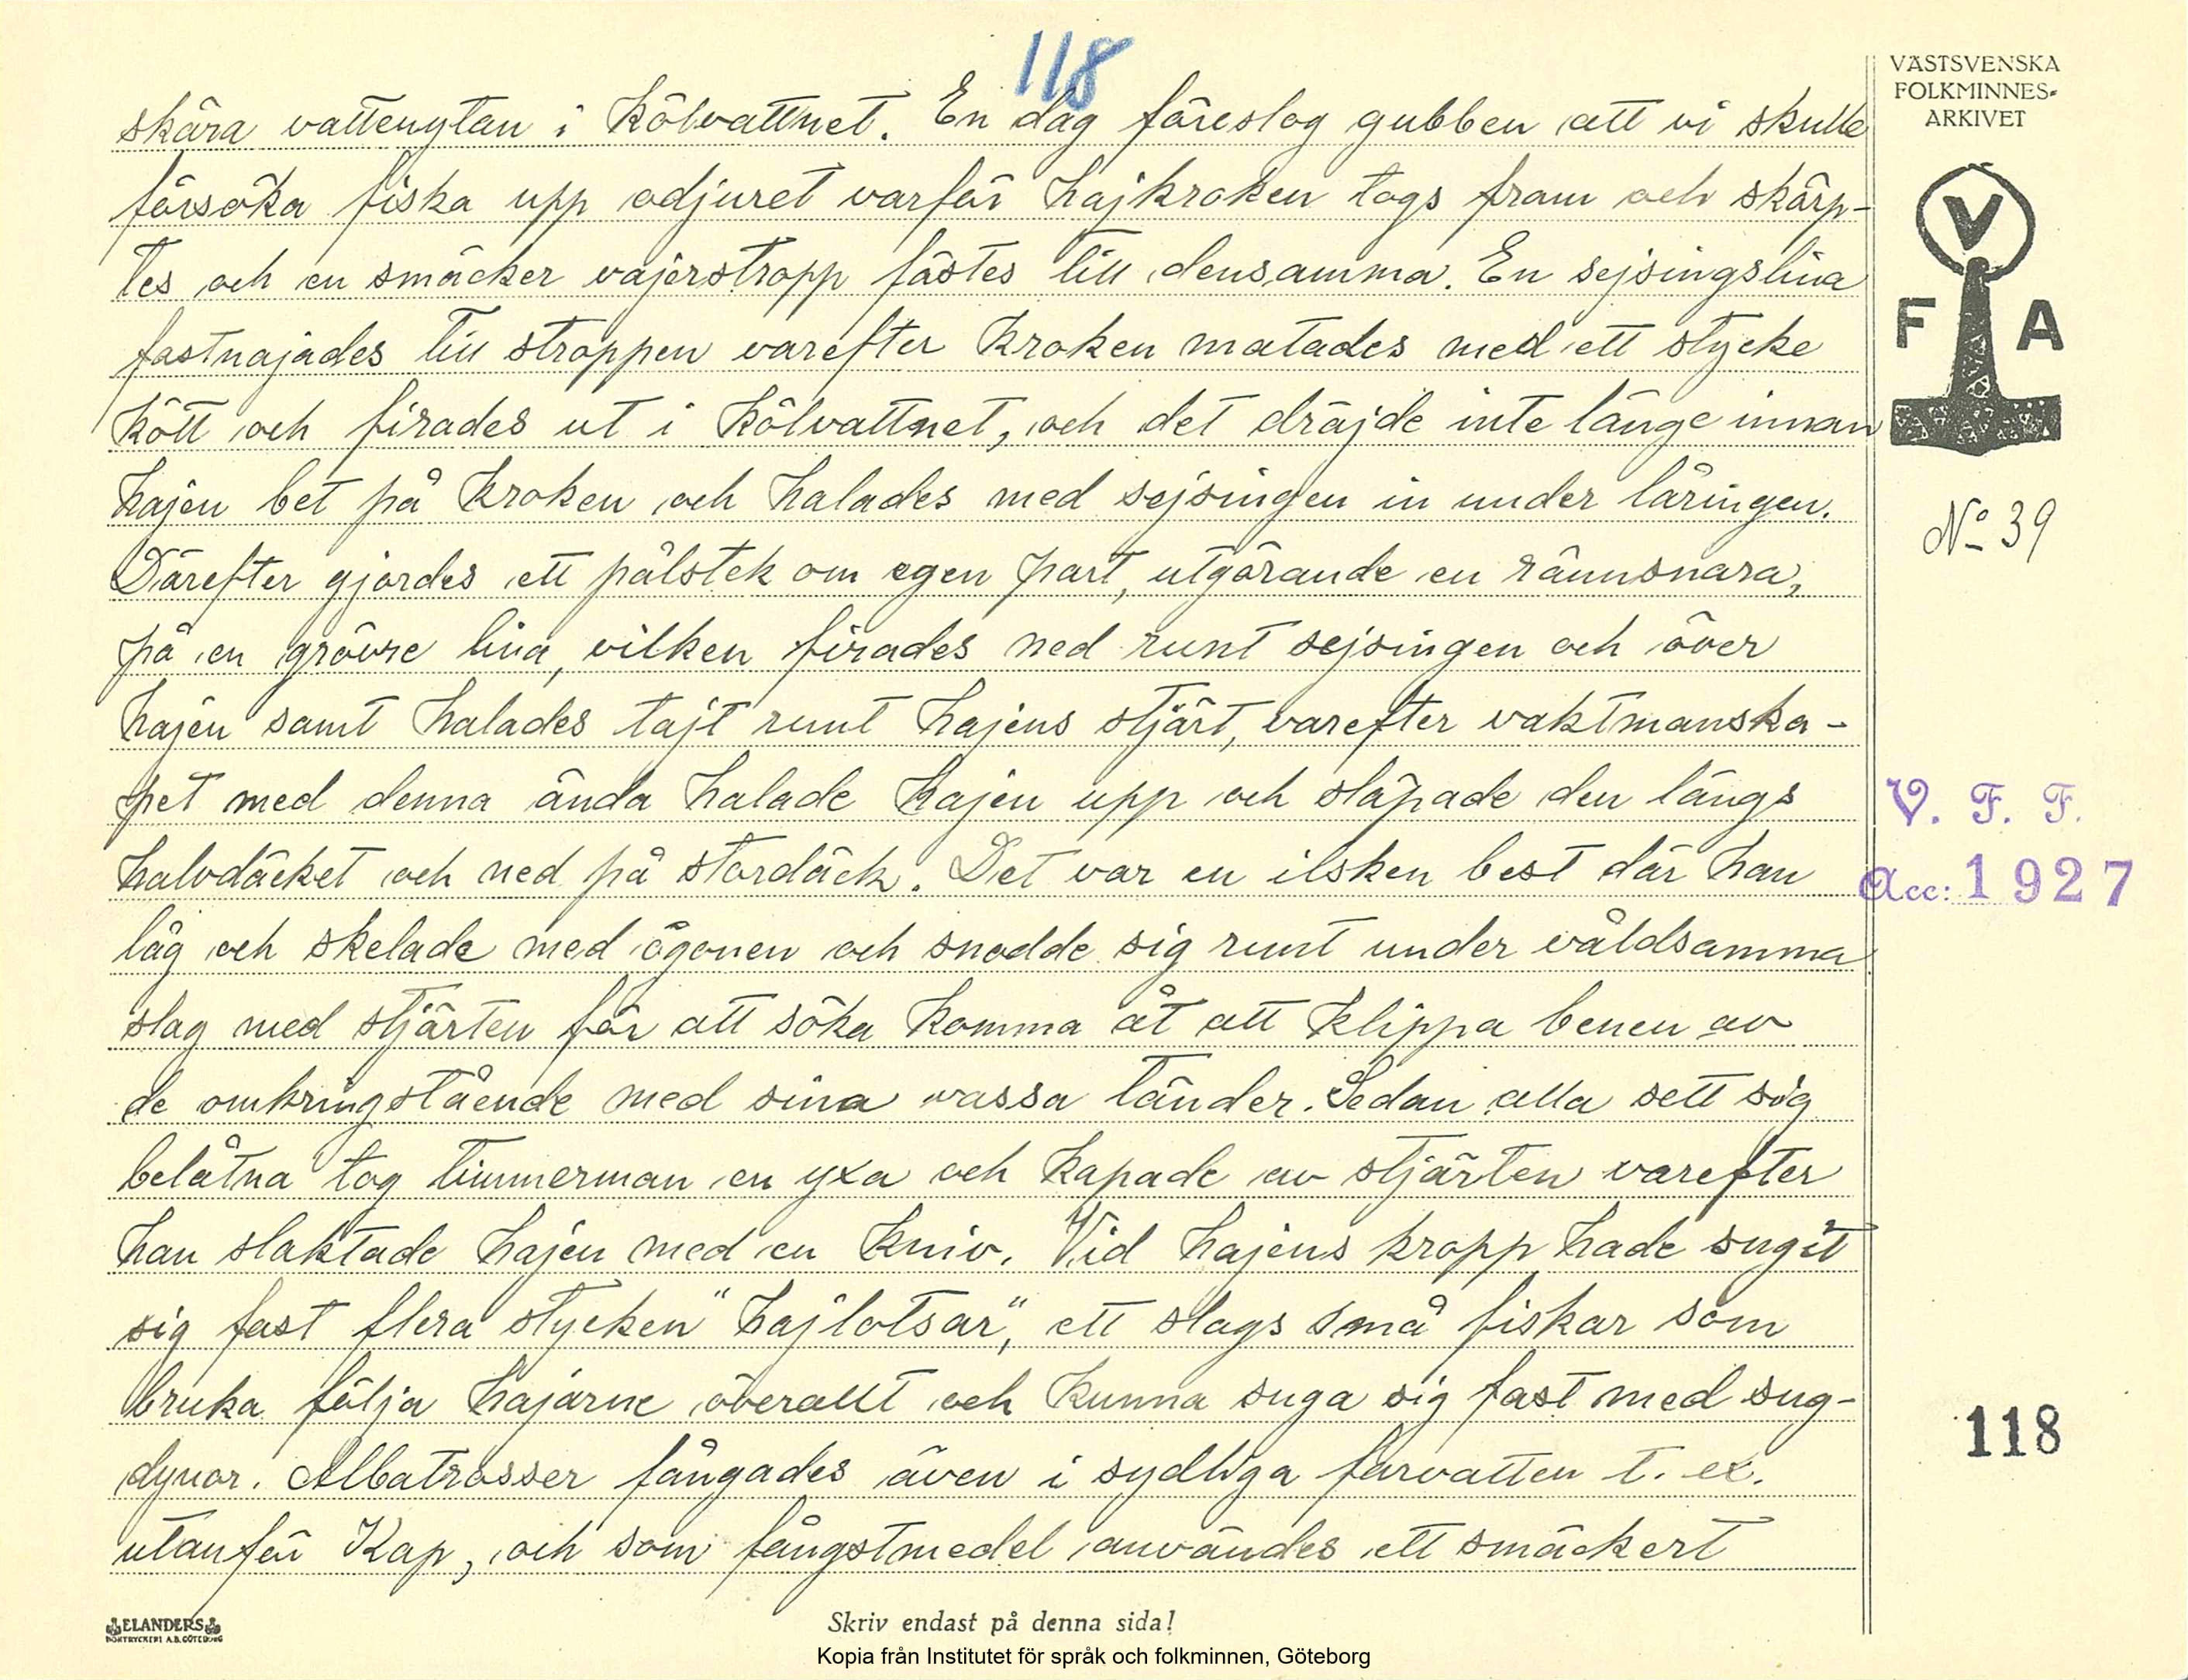 118
skära vattenytan i kölvattnet. En dag föreslog gubben att vi skulle
försöka fiska upp odjuret varför hajkroken togs fram och skärp-
tes och en smäcker vajerstropp fästes till densamma. En sejsingslina
fastnajades till stroppen varefter kroken matades med ett stycke
kött och firades ut i kölvattnet, och det dräjde inte länge innan
hajen bet på kroken och halades med sejsingen in under låringen.
Därefter gjordes ett pålstek om egen part, utgörande en rännsnara,
på en grövre lina, vilken firades ned runt sejsingen och över
hajen samt halades tajt runt hajens stjärt, varefter vaktmanska-
pet med denna ända halade hajen upp och släpade den längs
halvdäcket och ned på stordäck. Det var en ilsken best där han
låg och skelade med ögonen och snodde sig runt under våldsamma
slag med stjärten för att söka komma åt att klippa benen av
de omkringstående med sina vassa tänder. Sedan alla sett sig
belåtna tog timmerman en yxa och kapade av stjärten varefter
han slaktade hajen med en kniv. Vid hajens kropp hade sugit
sig fast flera stycken "hajlotsar", ett slags små fiskar som
bruka följa hajarne överallt och kunna suga sig fast med sug-
dynor. Albatrosser fångades även i sydliga farvatten t. ex.
utanför Kap, och som fångstmedel användes ett smäckert
VÄSTSVENSKA
FOLKMINNES-
ARKIVET
V
F A
No 39
V. F. F.
Acc: 1927
118
ELANDERS
BOKTRYCKERI A.B. GÖTEBORG
Skriv endast på denna sida!
Kopia från Institutet för språk och folkminnen, Göteborg